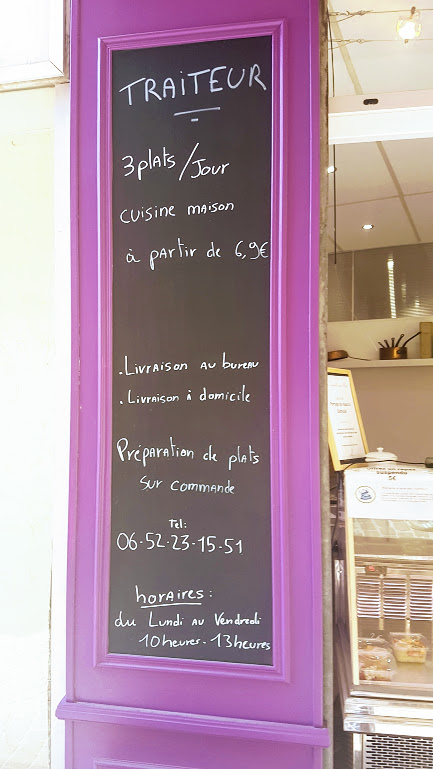 TRAITEUR
3 plats / Jour
cuisine maison
à partir de 6,9€
. Livraison au bureau
. Livraison à domicile
Préparation de plats
sur commande
Tel:
06-52-23-15-51
horaires :
du Lundi au Vendredi
10 heures - 13 heures
suspendu
5€